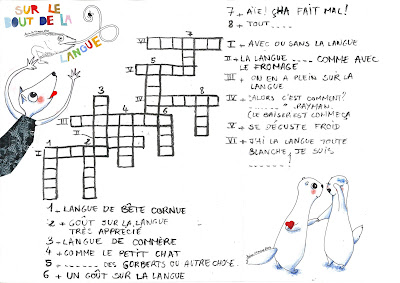 SUR LE
BOUT DE LA
LANGUE
7 + AÏE! ÇHA FAIT MAL!
8 + TOUT....
I + AVEC OU SANS LA LANGUE
II + LA LANGUE .... COMME AVEC
LE FROMAGE
III + ON EN A PLEIN SUR LA
LANGUE
IV + "ALORS C'EST COMMENT?
........" RAYMAN.
(LE BAISER EST COMME ÇA
V + SE DÉGUSTE FROID
VI + J'AI LA LANGUE TOUTE
BLANCHE, JE SUIS
........!
7
VI
5
V
3
8
IV
4
6
III
2
II
1
I
1 _ LANGUE DE BÊTE CORNUE
2 + GOÛT SUR LA LANGUE
TRÈS APPRÉCIÉ
3 + LANGUE DE COMMÈRE
4 + COMME LE PETIT CHAT
5 - ........ DES GORBERTS OU AUTRE CHOSE.
6 + UN GOÛT SUR LA LANGUE